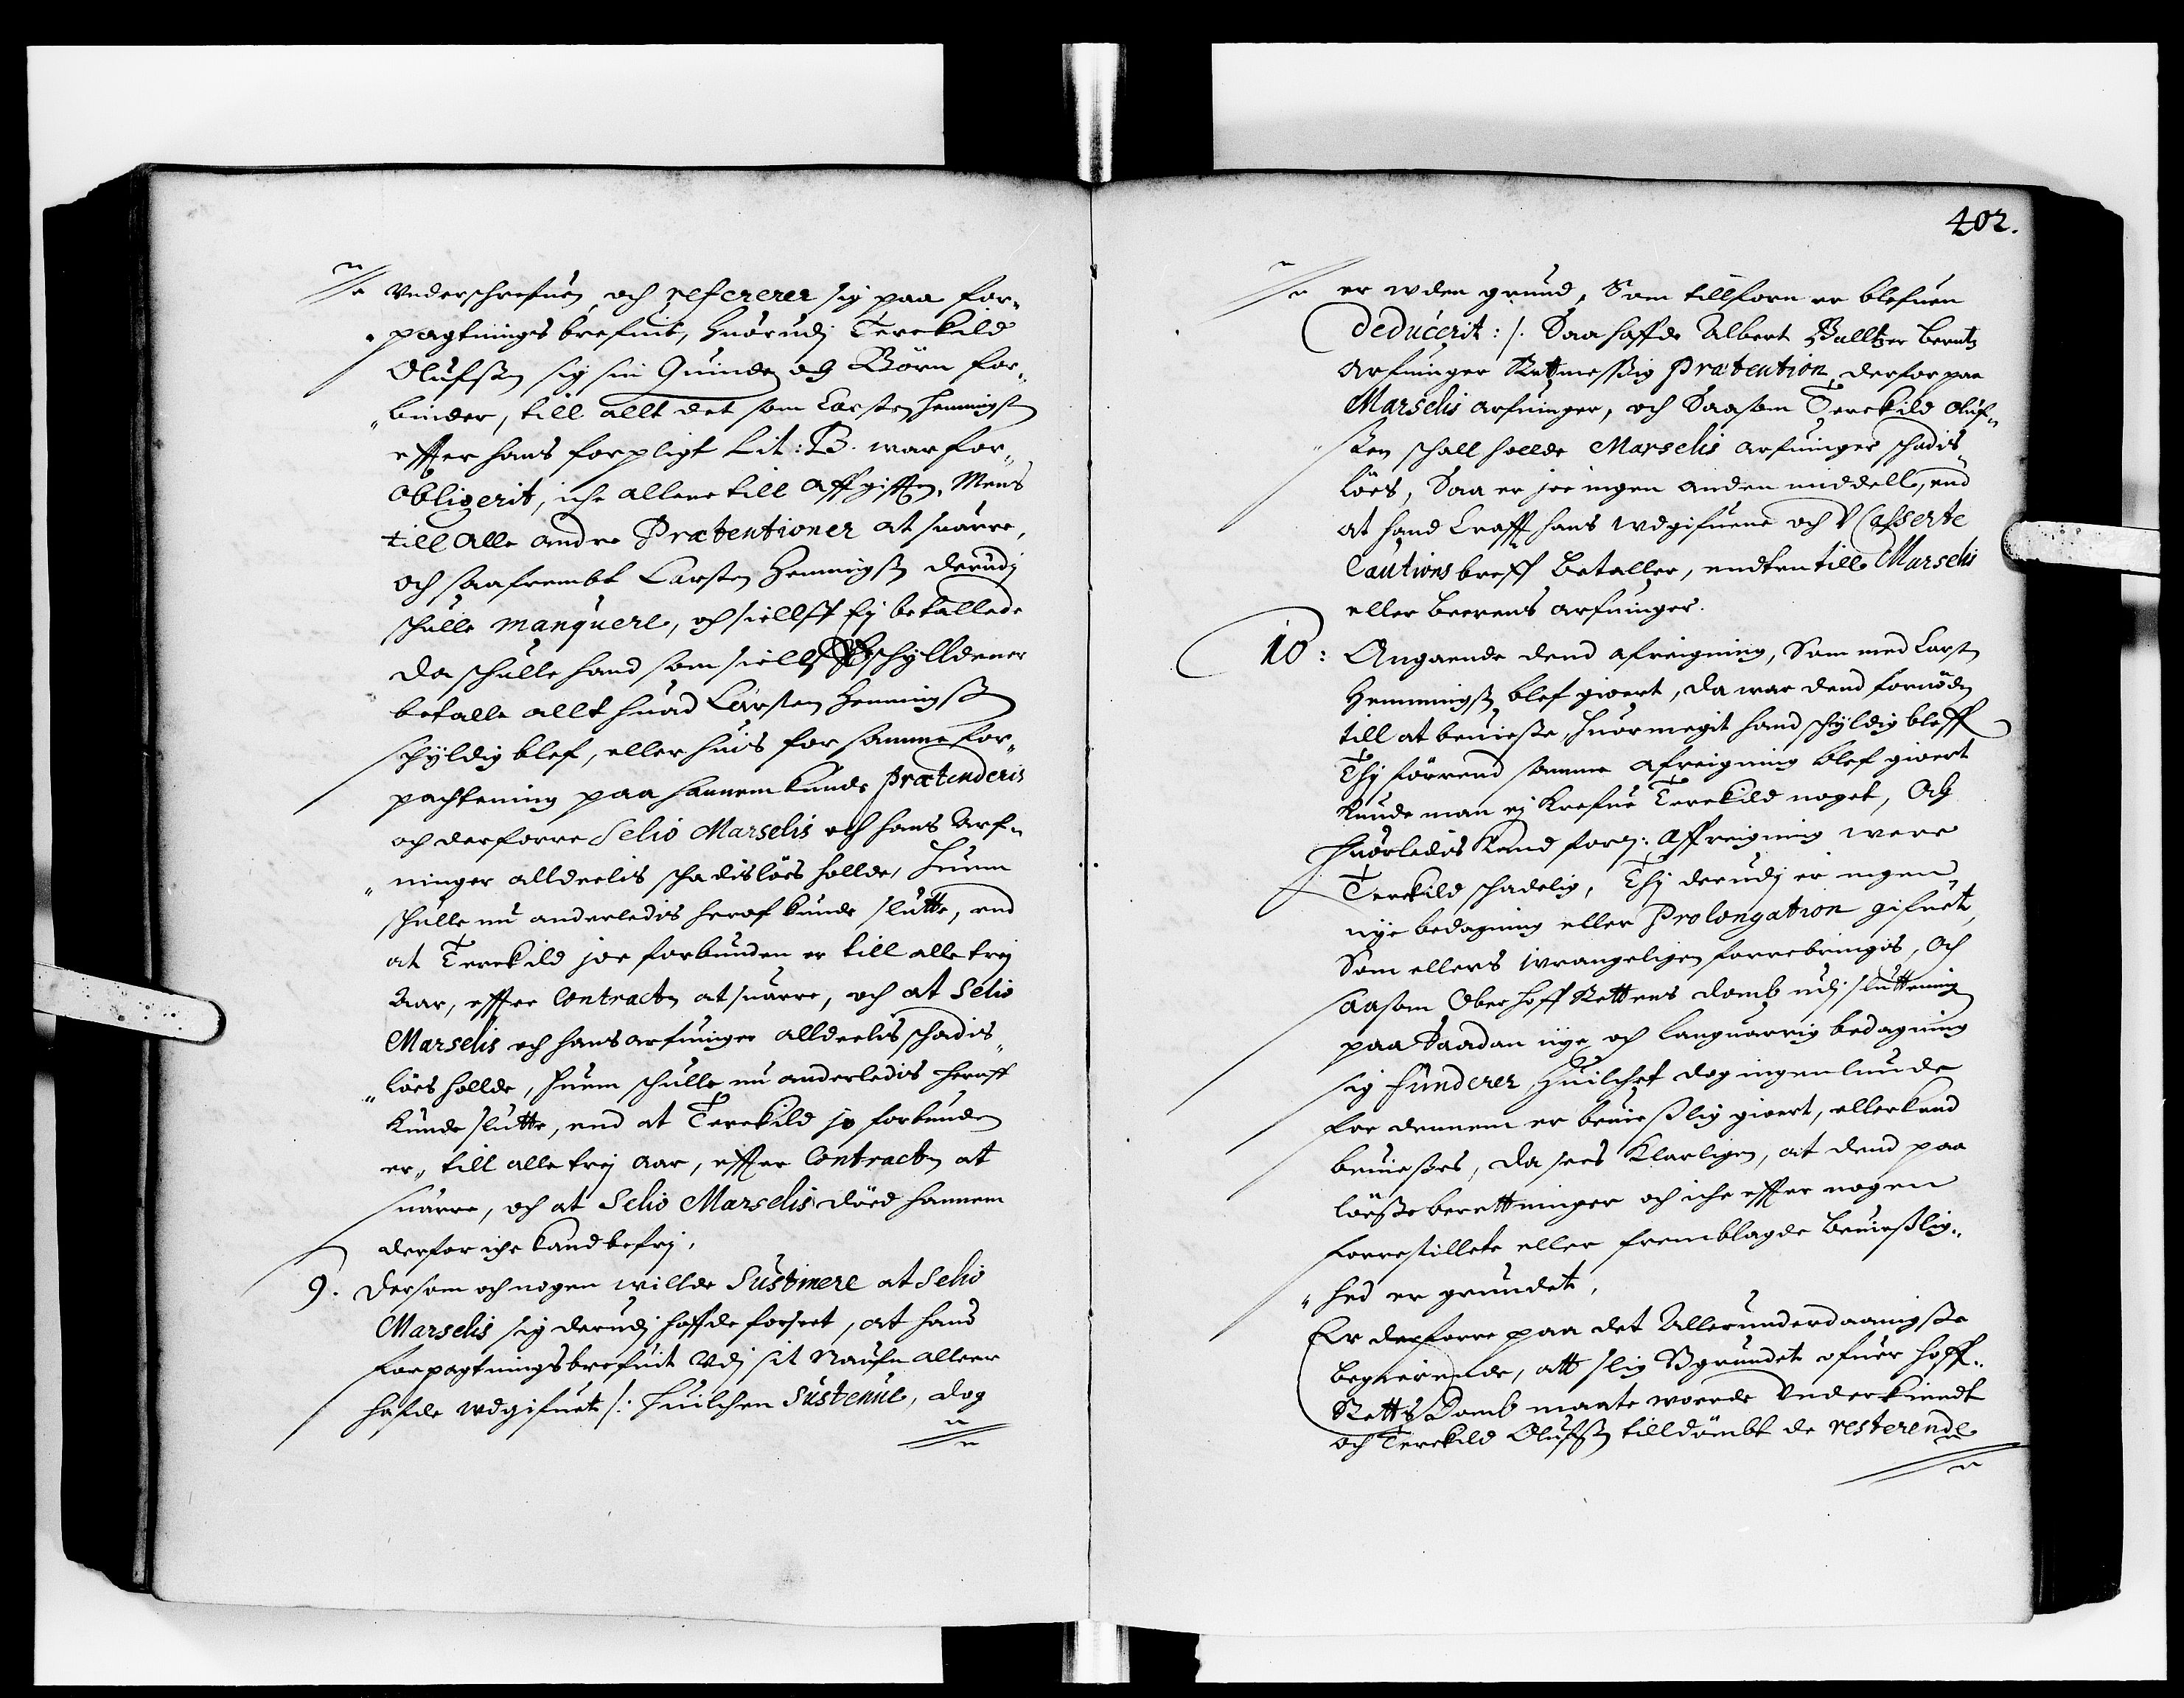 underschrefuen, och refererer sig paa for„
„pagtnings brefuit, huorudj Terckild
Olufsen sig sin Quinde og Börn for„
„binder, till allt det som Carsten Hemmingsen
effter hans forpligt Lit: B. war for„
obligerit, iche allene till Affgifften, Mens
till alle andre Prætentioner at suarre,
och saafrembt Carsten Hemmingsen derudj
schulle manquere, och sielff Ej betallede
da schulle hand som sielff schylldener
betalle allt huad Carsten Hemmingsen
schyldig blef, eller huis for samme for„
pachtning paa hannem kunde prætenderis
och derforre Selio Marselis och hans Arf„
„uinger alldeelis schadislöes hollde, Huem
schulle nu anderledis heraf kunde slutte, end
at Terckild joe forbunden er till alle trej
Aar, effter Contracten at suarre, och at Selio
Marselis och hans arfuinger alldeelis schadis„
„löes hollde, huem schulle nu anderledis heraff
kunde slutte, end at Terckild jo forbunden
er„ till alle trej Aar, effter Contracten at
suarre, och at Selio Marselis döed hannem
derfor iche kand befrj,
9. Dersom och nogen willde Sustinere at Selio
Marselis sig derudj haffde forseet, at hand
forpagtningsbrefuit udj sit Naufn alleene
hafde udgifuet /: huilchen Sustenue, dog
402.
er uden grund, Som tillforn er blefuen
deducerit: /. Saa haffde Albert Balltzer Berntz
Arfuinger Retmessig Prætention derfor paa
Marselis arfuinger, och Saasom Terckild Oluf„
„sen schall hollde Marselis arfuinger schadis„
löes, Saa er joe ingen anden middell, end
at hand Krafft hans udgifuene och Casserte
Cautions breff betaller, endten till Marselis
eller Beerens arfuinger.
10: Angaaende dend afreigning, Som med Carsten
Hemmingsen blef giort, da war dend fornöden
till at beuiese, huormegit hand schyldig bleff
Thj förrend samme afreigning blef giort
kunde man ej krefue Terckild noget, Och
huorledis kand forn: Affreigning were
Terckild schadelig, Thj derudj er ingen
nye bedagning eller Prolongation gifuet,
Som ellers wrangeligen forrebringis, Och
saasom Oberhoff Rettens domb udj sluttning
paa Saadan nye och languarrig bedagning
sig funderer, Huilchet dog ingenlunde
for dennem er beuieslig giort, eller kand
beuieses, da sees klarligen, at dend paa
löesse berettninger och iche effter nogen
forrestillede eller fremblagde beuieslig„
„hed er grundet,
Er derforre paa det Allerunderdaanigste
begierende, att slig Ugrundet ofuer hoff„
Retts Domb maate worde Underkiendt
och Terckild Olufsen tilldömbt de resterende